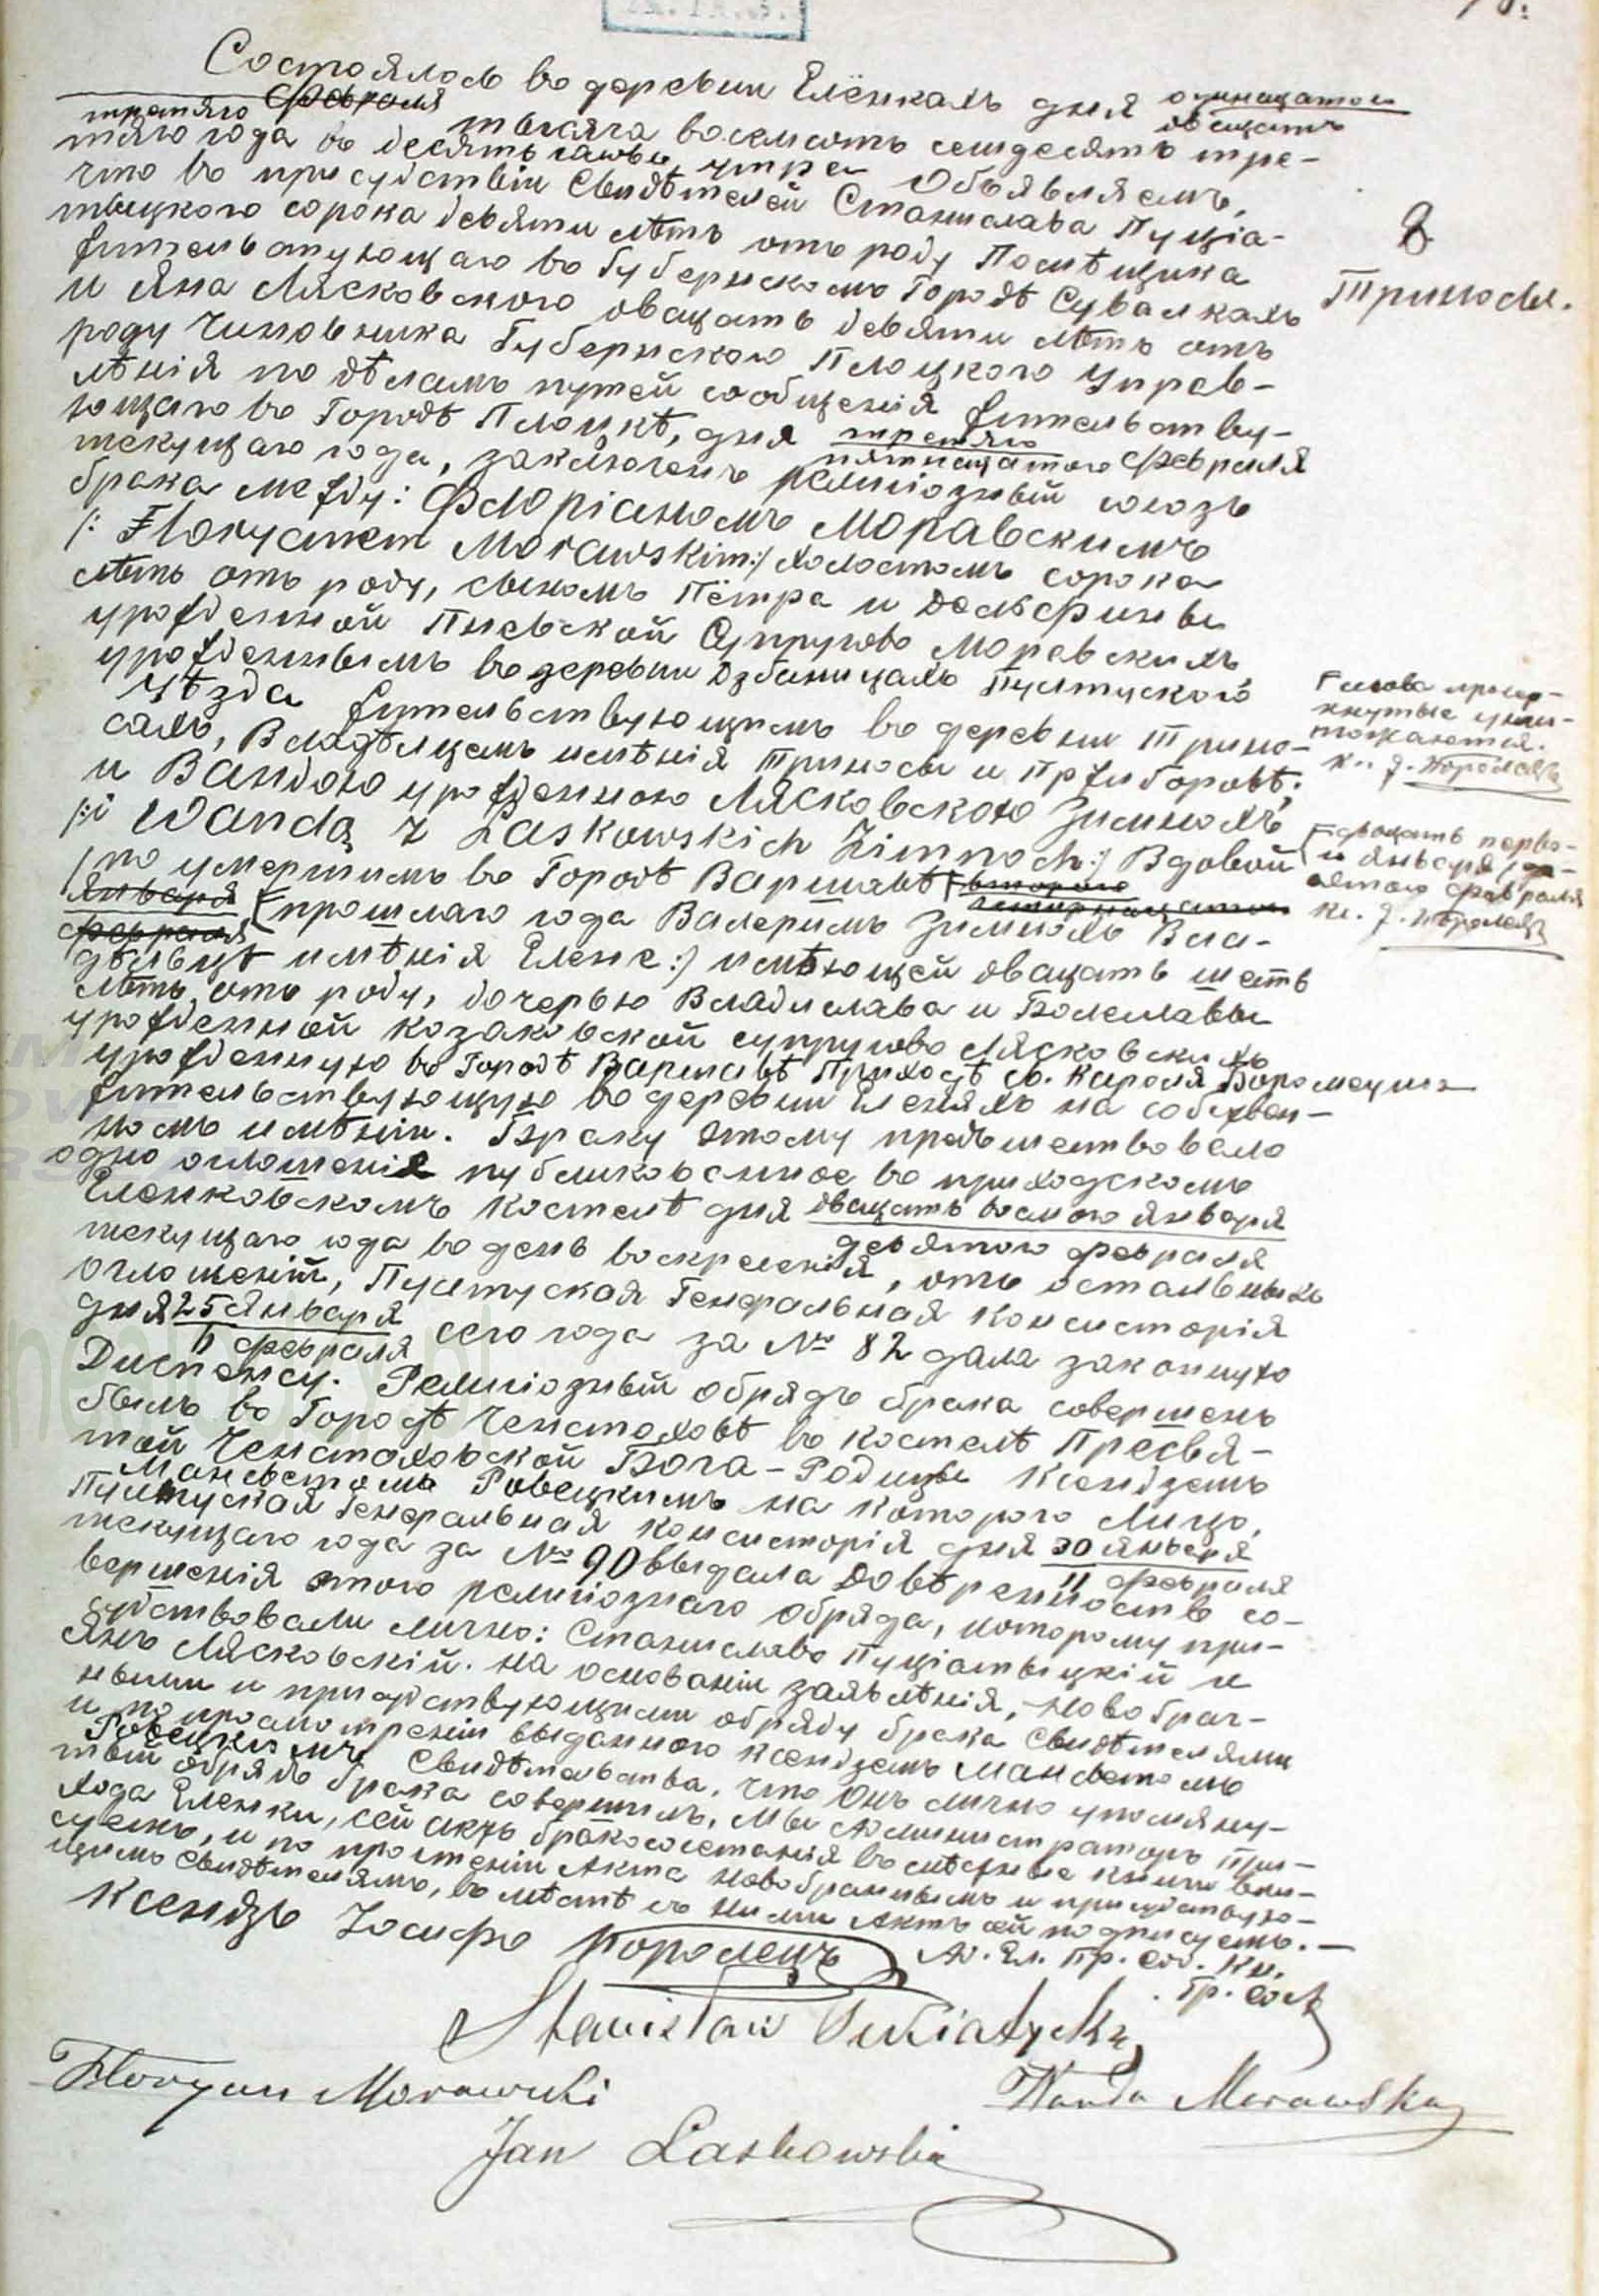 8
Тринось.
Состоялось въ деревни Елёнкахъ дня одинадцатого
двацать
третяго Февраля тысяча восемсотъ семдесятъ тре-
тяго года въ десять часовъ утра Объявляемъ,
что въ присудствіи Свидѣтелей Станислава Пуціа-
тыцкого сорока девяти лѣтъ отъ роду Помѣщика
жительствующаго въ Губернскомъ Городѣ Сувалкахъ
и Яна Лясковского двацать девяти лѣтъ отъ
роду Чиновника Губернского Плоцкого Управ-
лѣнія по дѣламъ путей сообщенія жительству-
ющаго въ Городѣ Плоцкѣ, дня третяго
пятнацатого Февраля
текущаго года, заключенъ религіозный союзъ
брака между: Флоріаномъ Моравскимъ
/: Floryanem Morawskim:/ Холостомъ сорока
лѣтъ отъ роду, сыномъ Пётра и Дельфины
урожденной Пневской Супруговъ Моравскихъ,
урожденнымъ въ деревни Дзбаницахъ Пултуского
Уѣзда жительствующимъ въ деревни Трино-
сахъ, Владѣлцемъ имѣнія Триносы и Пржиборовѣ;
и Вандою урожденною Лясковскою Зимнохъ
/:i Wandą z Laskowskich Zimnoch:/ Вдовой
/по умершимъ въ Городѣ Варшавѣ второго
четырнацатого
Января
Февраля
прошлаго года Валеріимъ Зимнохъ Вла-
дѣльцѣ имѣнія Еленке:/ имѣющей двацать шесть
лѣтъ отъ роду, дочерью Владислава и Болеславы
урожденной Козаковской супруговъ Лясковскихъ
урожденную въ Городѣ Варшавѣ Приходѣ св. Кароля Боромеуша
жительствующую въ деревни Еленкахъ на собствен-
номъ имѣніи. Браку этому предшествовало
одно оглошеніе публикованное въ приходскомъ
Еленковскомъ костелѣ дня двацать восмого Января
девятого Февраля
текущаго года въ день воскресенія, отъ остальныхъ
оглошеній, Пултуская Генеральная Консисторія
дня 25 Января
6 Февраля
сего года за № 82 дала законную
Диспенсу. Религіозный обрядъ брака совершенъ
былъ въ Городѣ Ченстоховѣ въ костелѣ Пресвя-
той Ченстоховской Бога-Родицы Ксендземъ
Мансветомъ Ровецкимъ на которого Лицо,
Пултуская Генеральная Консисторія дня 30 Января
11 Февраля
текущаго года за № 90 выдала Довѣренность со-
вершенія этого религіознаго обряда, которому при-
судствовали лично: Станиславъ Пуціатыцкій и
Янъ Лясковскій. На основаніи заявлѣнія, Новобрач-
ными и присудствующими обряду брака Свидѣтелями
и по просмотреніи выданного Ксендземъ Мансветомъ
Ровецкимъ Свидѣтельства, что Онъ лично упомяну-
тый обрядъ брака совершилъ, Мы Администраторъ При-
хода Еленки, сей актъ бракосочетанія въ мѣстные книги впи-
суемъ, и по прочтеніи Акта Новобрачнымъ и присудствую-
щимъ Свидѣтелямъ, въ мѣстѣ съ ними Актъ сей подписуемъ.—
Ксендзъ Іосифъ Королецъ Ад. Ел. Пр. Сод. Кн.
Гр. Сост.
Слова прочер-
кнутые уничтожаются.
Кс. І. Королецъ
двацать перво-
го Января /де-
вятого Февраля
Кс. І. Королецъ
Stanisław Puciatycki
Floryan Morawski
Wanda Morawska
Jan Laskowski